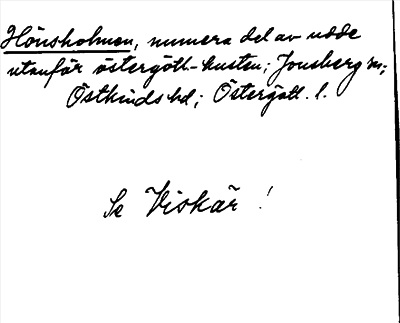 Hönsholmen, numera del av udde
utanför östergötl.-kusten; Jonsberg sn;
Östkinds hd; Östergötl. l.
Se Viskär!